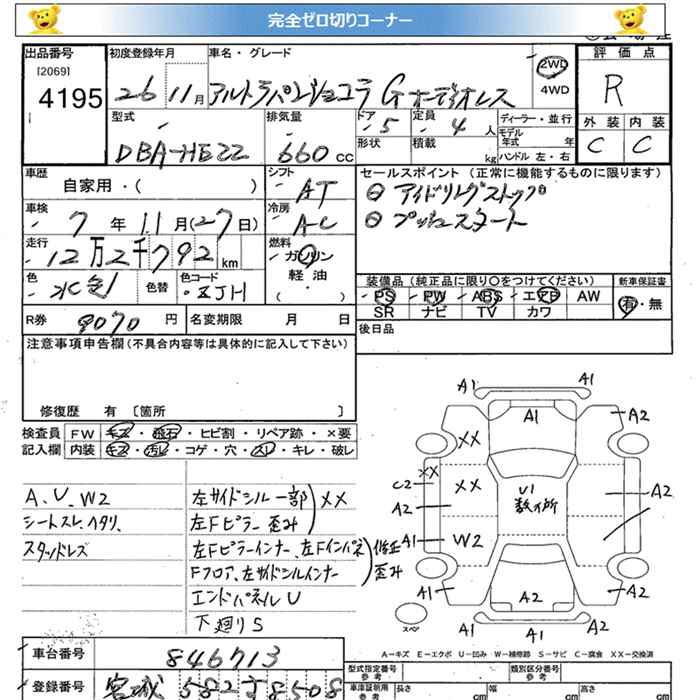 完全ゼロ切りコーナー
出品番号
[2069]
4195
初度登録年月
26 11月
車名・グレード
アルトラパンショコラ Gオーディオレス
2WD
4WD
評価点
R
外装 内装
C C
型式
DBA-HE22
排気量
660cc
ドア
5
形状
定員
4人
積載
kg
ディーラー・並行
モデル年式 年
ハンドル 左・右
車歴
自家用・( )
シフト
AT
セールスポイント(正常に機能するものに限ります)
アイドリングストップ
プッシュスタート
車検
7年11月(27日)
冷房
AC
走行
12万2千792km
燃料
ガソリン
軽油
・( )
色
水色
色替
色コード
ZJH
装備品(純正品に限り○をつけてください)
PS PW ABS エアB AW
SR ナビ TV カワ
新車保証書
有・無
R券 9070円
名変期限 月 日
後日品
注意事項申告欄(不具合内容等は具体的に記入して下さい)
修復歴 有 [箇所 ]
検査員 FW キズ・飛石・ヒビ割・リペア跡・×要
記入欄 内装 キズ・汚レ・コゲ・穴・スレ・キレ・破レ
A、U、W2
シートスレ、ヘタリ、
スタッドレス
左サイドシル一部 XX
左Fピラー歪み
左Fピラーインナー、左Fインパネ 修正
Fフロア、左サイドシルインナー 歪み
エンドパネルU
下廻りS
A1 A1
A1 A2
XX
XX
C2 XX
A2 U1 A2
数ヶ所
A1 W2
A1 A2 A2
スペア
A1 A1
A－キズ E－エクボ U－凹み W－補修跡 S－サビ C－腐食 XX－交換済
車台番号 846713
登録番号 宮城 582 す 8508
型式指定番号
参考
類別区分番号
参考
車庫証明用
参考
長さ cm
幅 cm
高さ cm